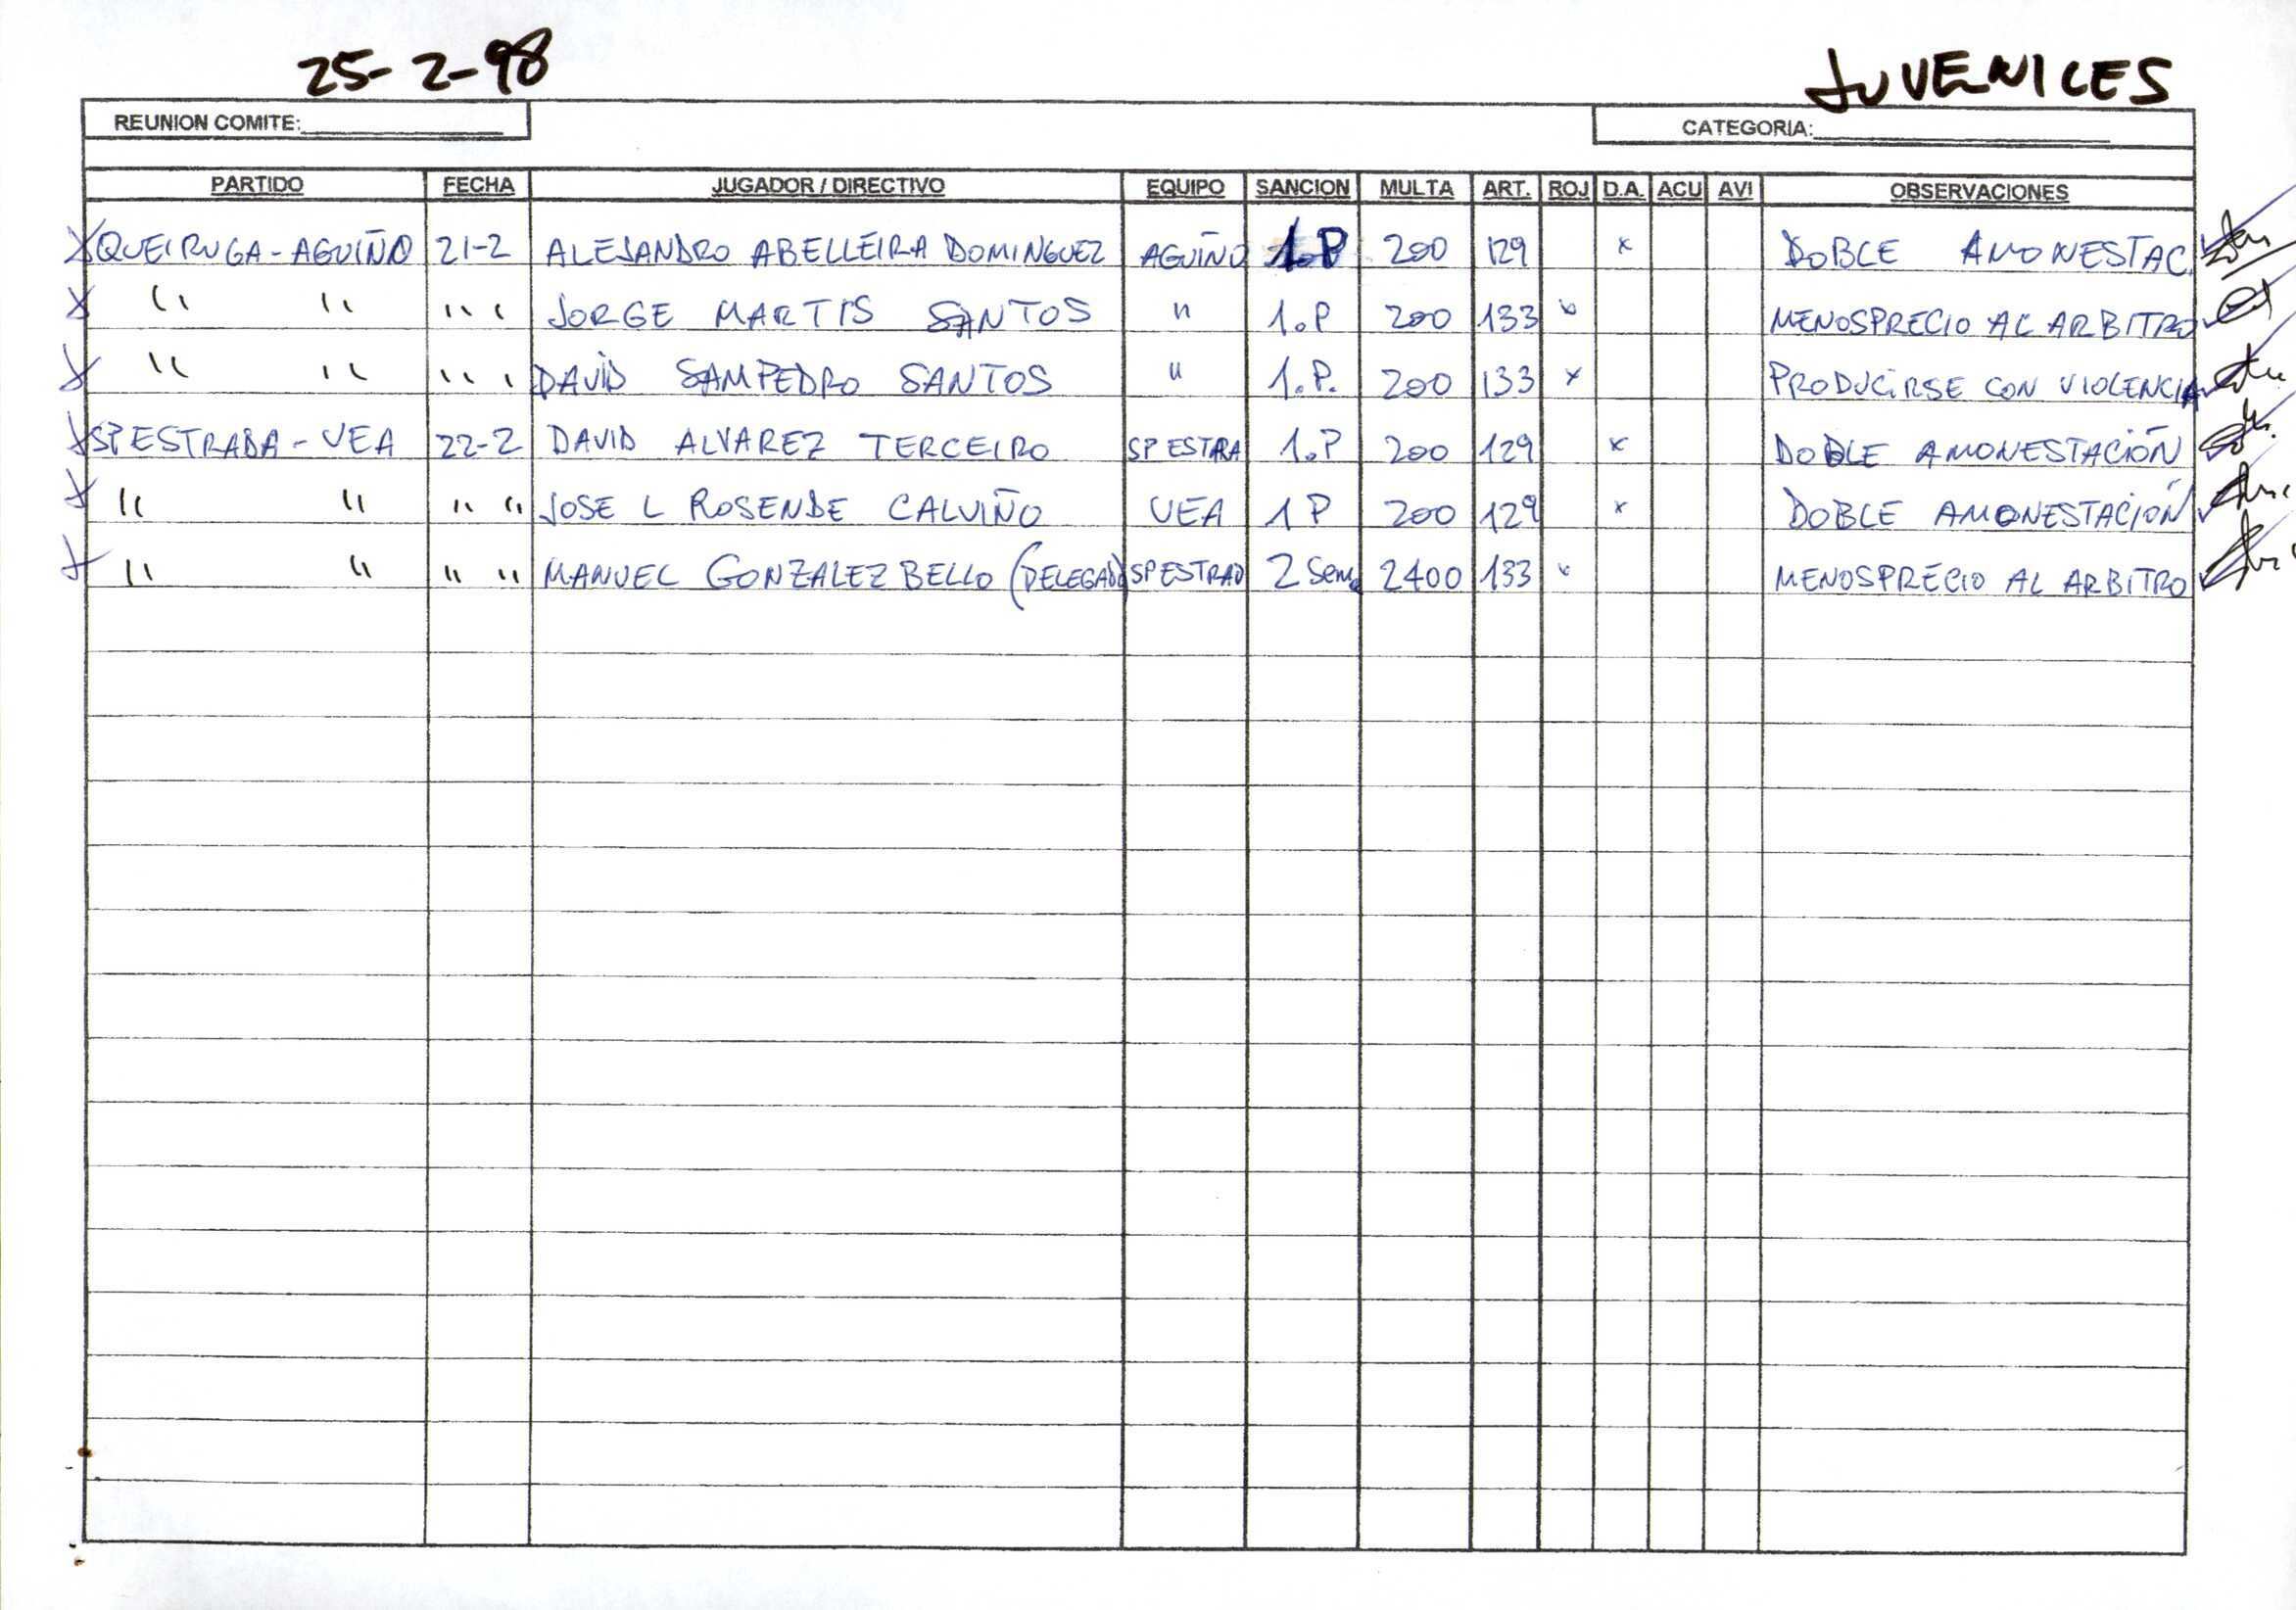 25-2-98 JUVENILES
REUNION COMITE: CATEGORIA:
PARTIDO FECHA JUGADOR / DIRECTIVO EQUIPO SANCION MULTA ART. ROJ D.A. ACU AVI OBSERVACIONES
X QUEIRUGA-AGUIÑO 21-2 ALEJANDRO ABELLEIRA DOMINGUEZ AGUIÑO 1.P 200 129 x DOBLE AMONESTAC.
X " " " " JORGE MARTIS SANTOS " 1.P 200 133 x MENOSPRECIO AL ARBITRO
X " " " " DAVID SAMPEDRO SANTOS " 1.P. 200 133 x PRODUCIRSE CON VIOLENCIA
X SP ESTRADA-VEA 22-2 DAVID ALVAREZ TERCEIRO SP ESTRA 1.P 200 129 x DOBLE AMONESTACIÓN
X " " " " JOSE L ROSENDE CALVIÑO VEA 1 P 200 129 x DOBLE AMONESTACIÓN
X " " " " MANUEL GONZALEZ BELLO (DELEGADO) SP ESTRAD 2 Sem. 2400 133 x MENOSPRECIO AL ARBITRO